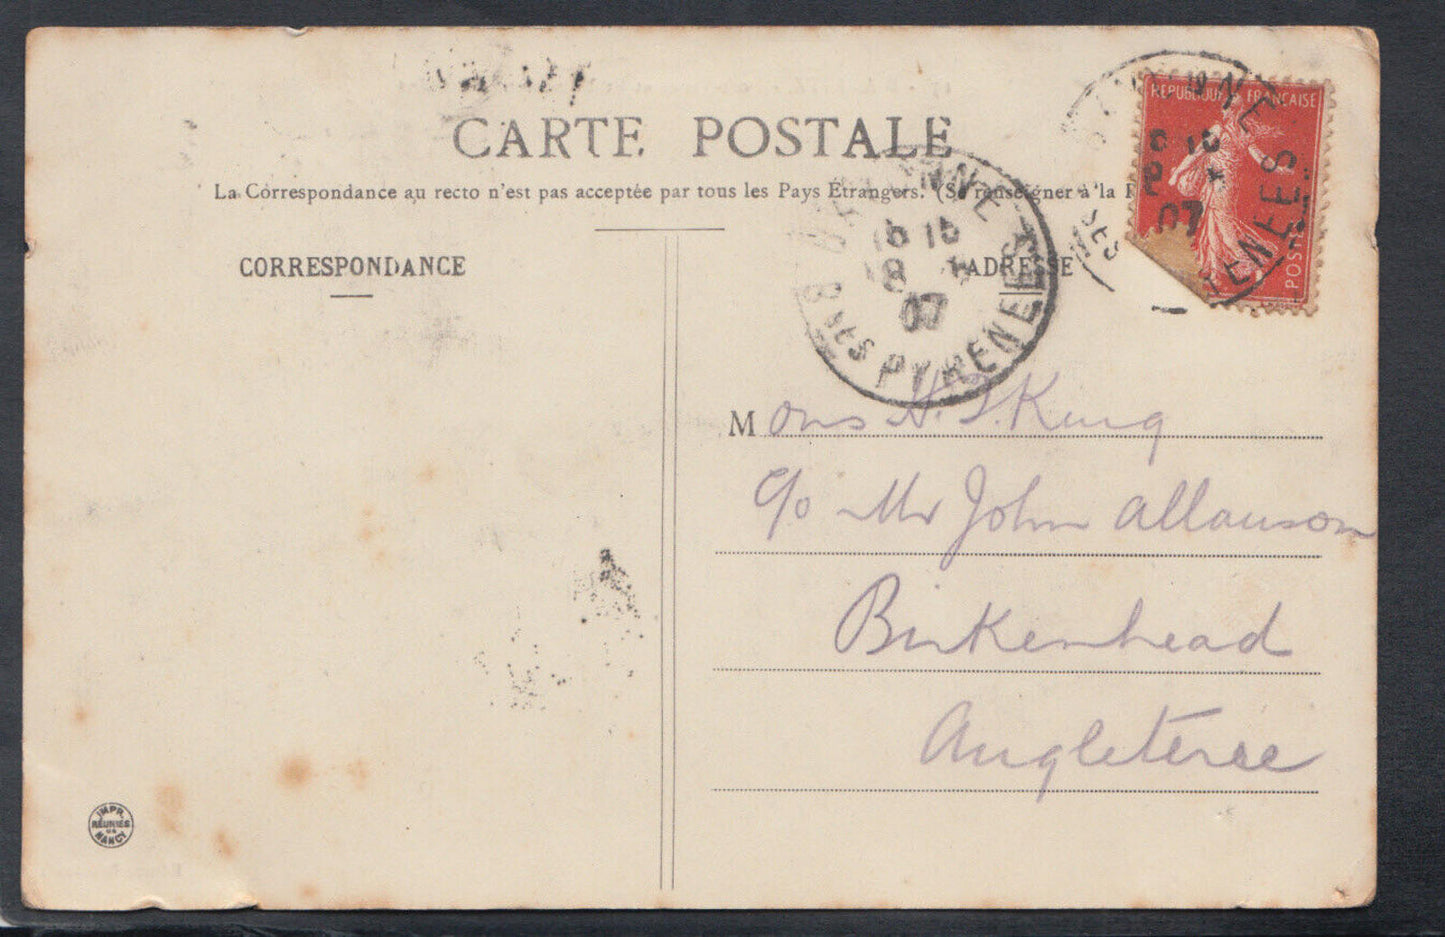 CARTE POSTALE
La Correspondance au recto n'est pas acceptée par tous les Pays Etrangers. (Se renseigner à la P
CORRESPONDANCE
ADRESSE
REPUBLIQUE FRANCAISE
POSTES
BAYONNE
Bses PYRENEES
07
PYRENEES
07
Mons H. J. King
c/o Mr John Allauson
Birkenhead
Angleterre
IMPR.
REUNIES
DE
NANCY